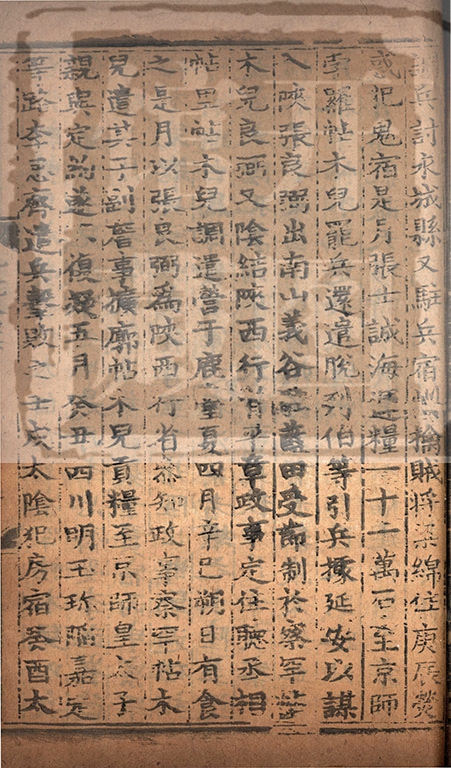 兵討永城縣又駐兵宿州擒賊將梁綿住庚辰熒
惑犯鬼宿是月張士誠海運糧一十二萬石至京師
孛羅帖木兒罷兵還遣脫列伯等引兵據延安以謀
入陝張良弼出南山義谷藍田受節制於察罕
木兒良弼又陰結陝西行省平章政事定住聽丞相
帖里帖木兒調遣營于鹿臺夏四月辛巳朔日有食
之是月以張良弼爲陝西行省參知政事察罕帖木
兒遣其子副詹事擴廓帖木兒貢糧至京師皇太子
親與定約遂不復疑五月癸丑四川明玉珍陷嘉定
等路李思齊遣兵擊敗之壬戌太陰犯房宿癸酉太